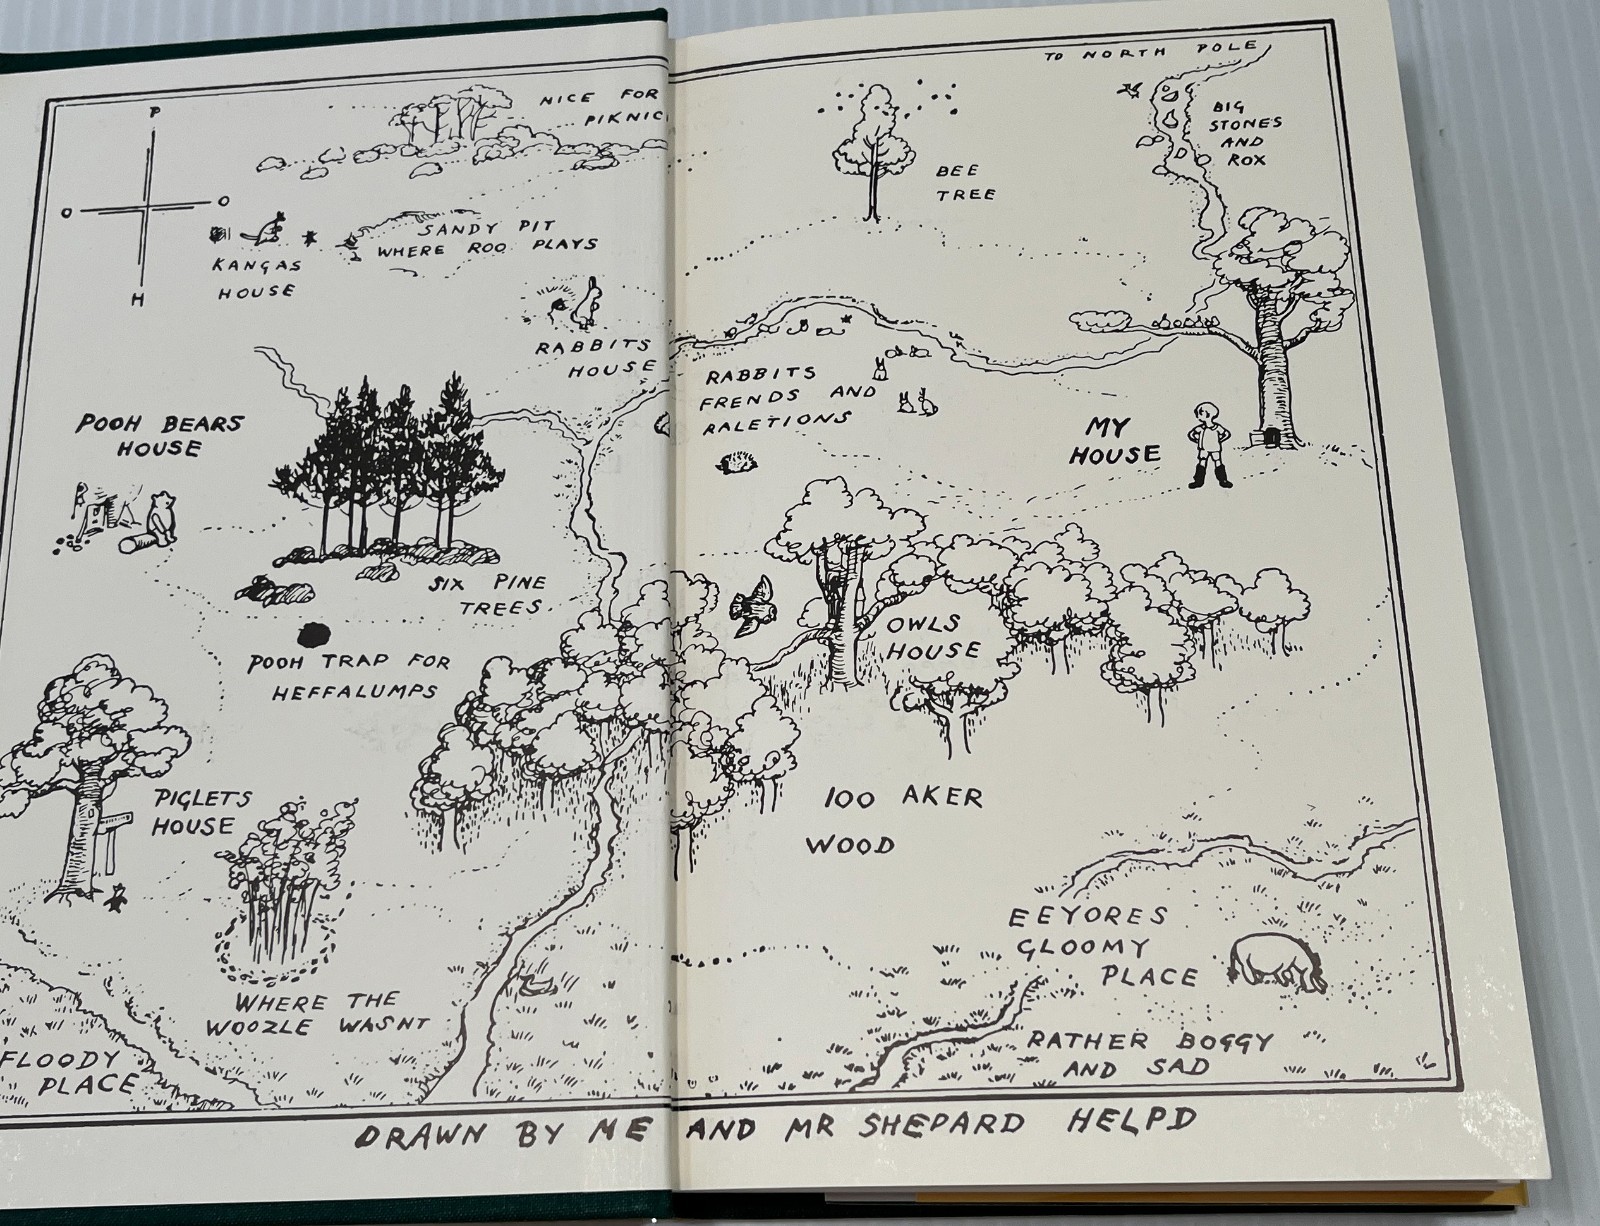 TO NORTH POLE
P
O
O
H
NICE FOR
PIKNIC
BIG
STONES
AND
ROX
BEE
TREE
SANDY PIT
WHERE ROO PLAYS
KANGAS
HOUSE
RABBITS
HOUSE
RABBITS
FRENDS AND
RALETIONS
MY
HOUSE
POOH BEARS
HOUSE
SIX PINE
TREES.
OWLS
HOUSE
POOH TRAP FOR
HEFFALUMPS
PIGLETS
HOUSE
100 AKER
WOOD
EEYORES
GLOOMY
PLACE
WHERE THE
WOOZLE WASNT
RATHER BOGGY
AND SAD
FLOODY
PLACE
DRAWN BY ME AND MR SHEPARD HELPD